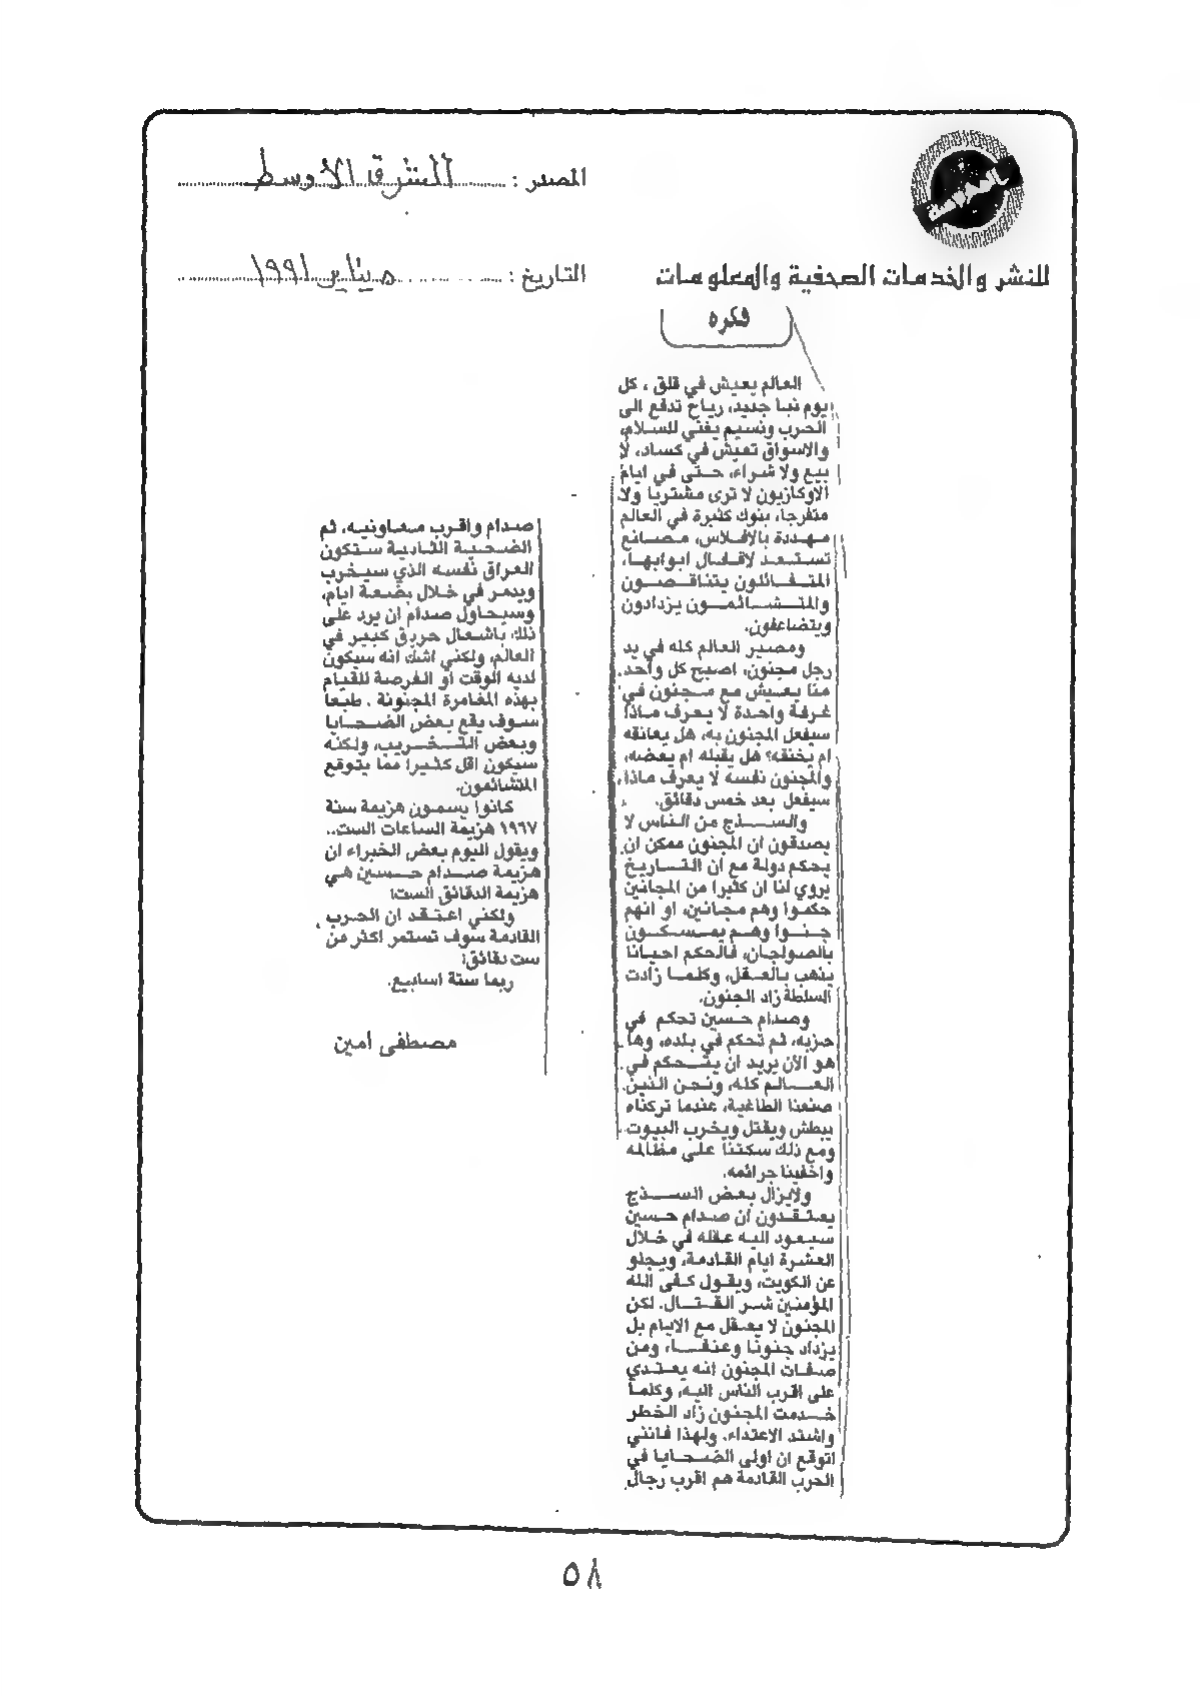 المصدر : الشرق الأوسط
للنشر والخدمات الصحفية والمعلومات
التاريخ : ٥ يناير ١٩٩١
فكره
العالم يعيش في قلق ، كل
يوم نبا جديد، رياح تدفع الى
الحرب ونسيم يغني للسلام،
والاسواق تعيش في كساد، لا
بيع ولا شراء، حتى في ايام
الاوكازيون لا ترى مشتريا ولا
متفرجا، بنوك كثيرة في العالم
مهددة بالافلاس، مصانع
تستعد لاقفال ابوابها،
المتفائلون يتناقصون
والمتشائمون يزدادون
ويتضاعفون.
ومصير العالم كله في يد
رجل مجنون، اصبح كل واحد
منا يعيش مع مجنون في
غرفة واحدة لا يعرف ماذا
سيفعل المجنون به، هل يعانقه
ام يخنقه؟ هل يقبله ام يعضه،
والمجنون نفسه لا يعرف ماذا
سيفعل بعد خمس دقائق.
والسذج من الناس لا
يصدقون ان المجنون ممكن ان
يحكم دولة مع ان التاريخ
يروي لنا ان كثيرا من المجانين
حكموا وهم مجانين، او انهم
جنوا وهم يمسكون
بالصولجان، فالحكم احيانا
يذهب بالعقل، وكلما زادت
السلطة زاد الجنون.
وصدام حسين تحكم في
حزبه، ثم تحكم في بلده، وها
هو الآن يريد ان يتحكم في
العالم كله، ونحن الذين
صنعنا الطاغية، عندما تركناه
يبطش ويقتل ويخرب البيوت
ومع ذلك سكتنا على مظالمه
واخفينا جرائمه.
ولايزال بعض السذج
يعتقدون ان صدام حسين
سيعود اليه عقله في خلال
العشرة ايام القادمة، ويجلو
عن الكويت، ويقول كفى الله
المؤمنين شر القتال. لكن
المجنون لا يعقل مع الايام بل
يزداد جنونا وعنفا، ومن
صفات المجنون انه يعتدي
على اقرب الناس اليه، وكلما
خدمت المجنون زاد الخطر
واشتد الاعتداء. ولهذا فانني
اتوقع ان اولى الضحايا في
الحرب القادمة هم اقرب رجال
صدام واقرب معاونيه، ثم
الضحية الثانية ستكون
العراق نفسه الذي سيخرب
ويدمر في خلال بضعة ايام،
وسيحاول صدام ان يرد على
ذلك باشعال حريق كبير في
العالم، ولكني اشك انه سيكون
لديه الوقت او الفرصة للقيام
بهذه المغامرة المجنونة . طبعا
سوف يقع بعض الضحايا
وبعض التخريب، ولكنه
سيكون اقل كثيرا مما يتوقع
المتشائمون.
كانوا يسمون هزيمة سنة
١٩٦٧ هزيمة الساعات الست..
ويقول اليوم بعض الخبراء ان
هزيمة صدام حسين هي
هزيمة الدقائق الست!
ولكني اعتقد ان الحرب
القادمة سوف تستمر اكثر من
ست دقائق!
ربما ستة اسابيع.
مصطفى امين
٥٨